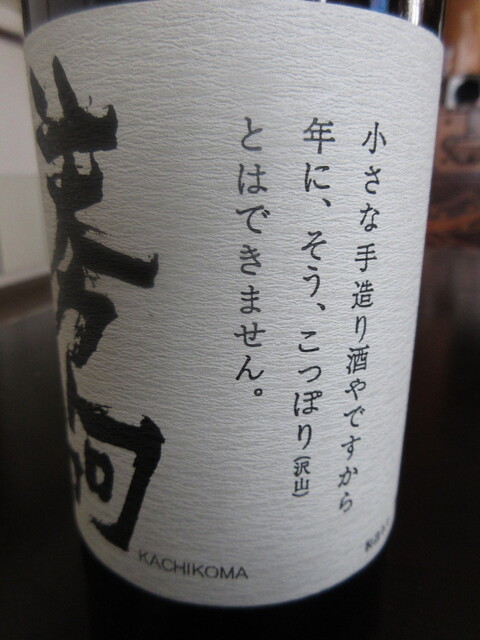 小さな手造り酒やですから
年に、そう、こっぽり(沢山)
とはできません。
KACHIKOMA